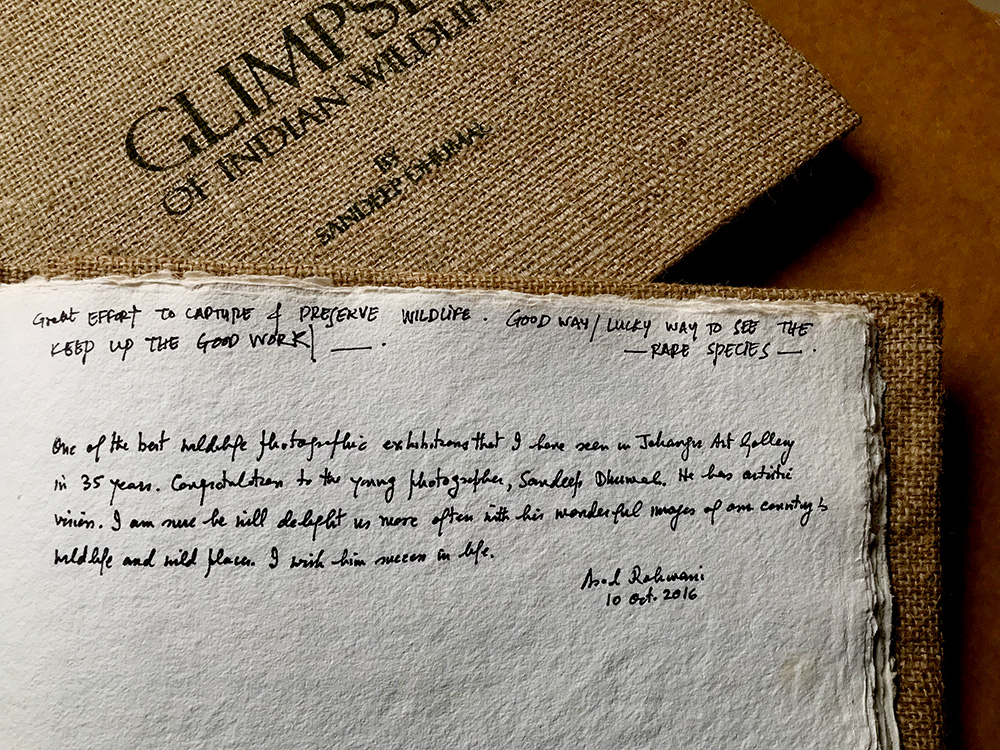 GLIMPSE
OF INDIAN WILDLIF
BY
SANDEEP DHUMAL
Great EFFORT TO CAPTURE & PRESERVE WILDLIFE. GOOD WAY/LUCKY WAY TO SEE THE
KEEP UP THE GOOD WORK| —. —RARE SPECIES—.
One of the best wildlife photographic exhibitions that I have seen in Jehangir Art Gallery
in 35 years. Congratulation to the young photographer, Sandeep Dhumal. He has artistic
vision. I am sure he will delight us more often with his wonderful images of our country's
wildlife and wild places. I wish him success in life.
Asad Rahmani
10 Oct. 2016